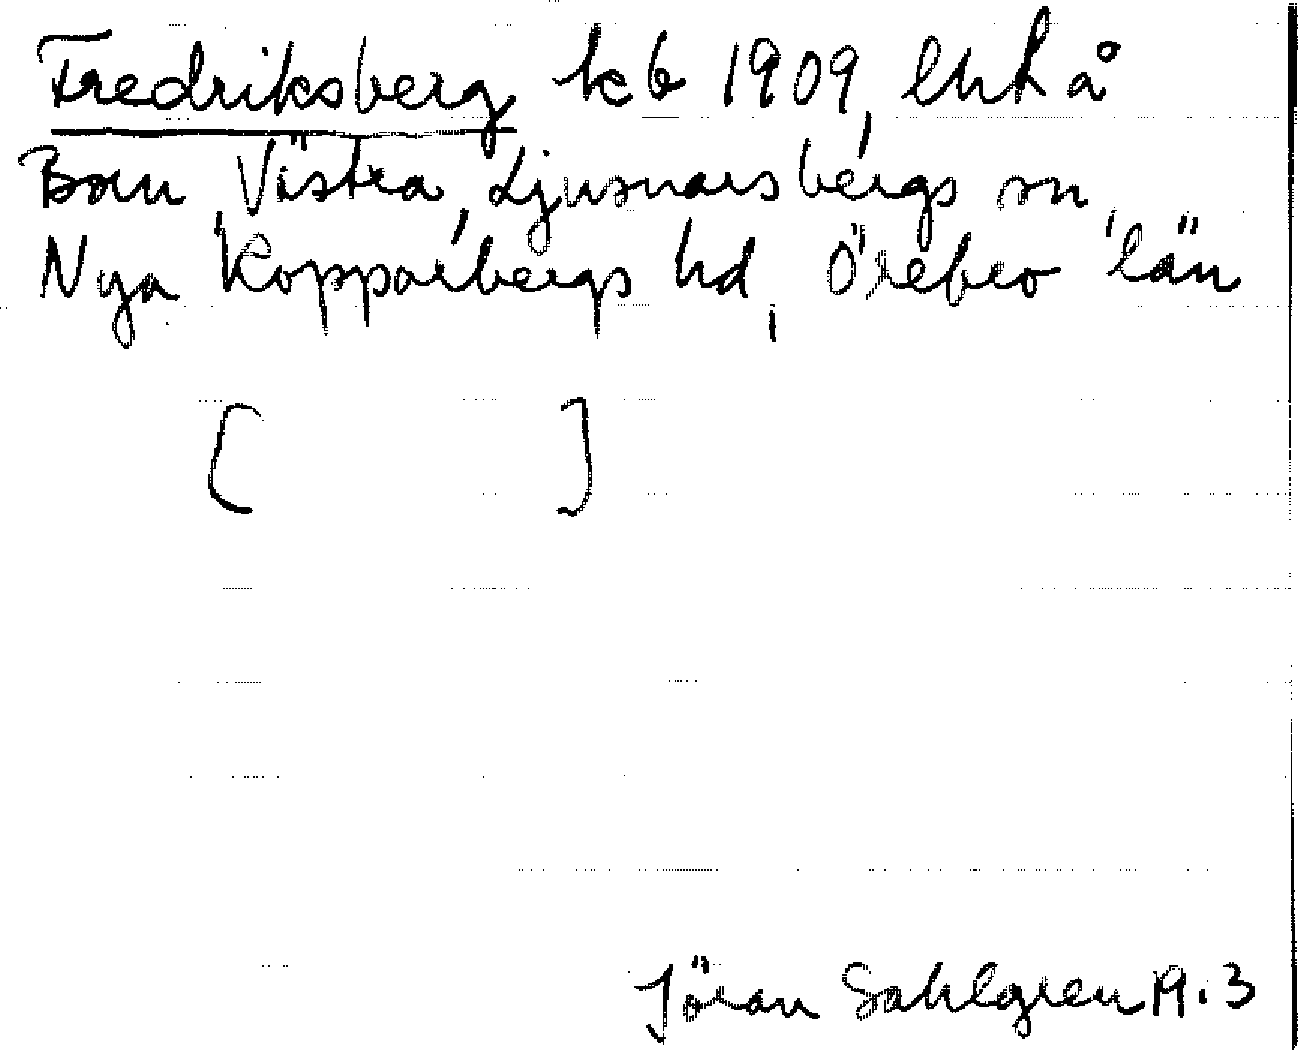 Fredriksberg kb 1909, lhk å
Born, Västra, Ljusnarsbergs sn,
Nya Kopparbergs hd, Örebro län
[ ]
Jöran Sahlgren 19.3